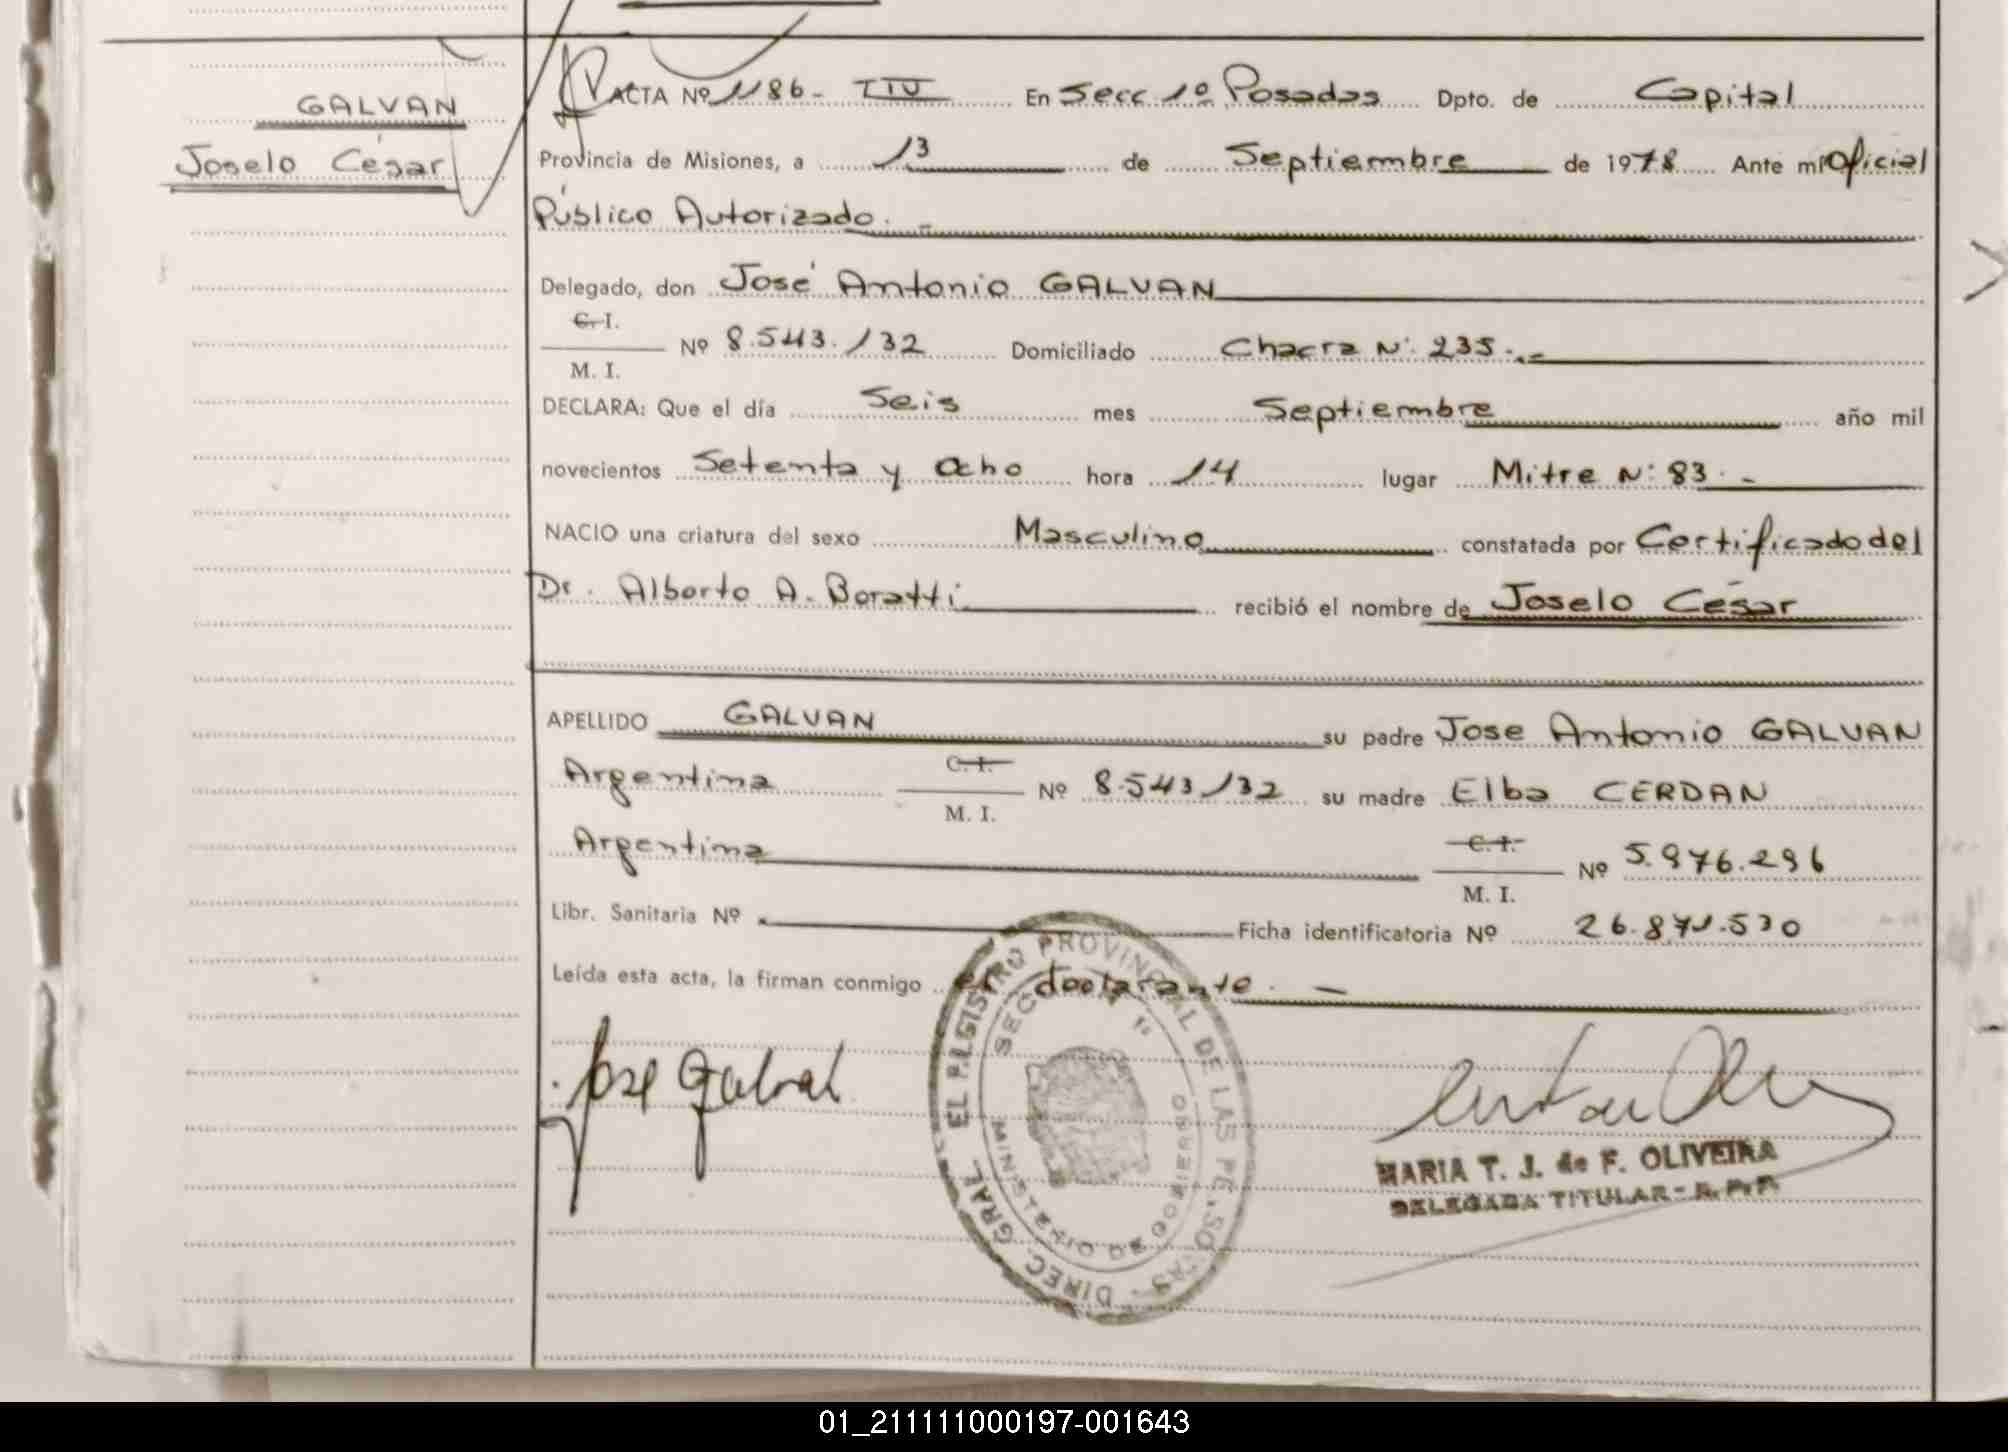 GALVAN
Joselo César
ACTA Nº 1186- En Secc. 1º Posadas Dpto. de Capital
Provincia de Misiones, a 13 de Septiembre de 1978 Ante mi Oficial
Público Autorizado. -
Delegado, don José Antonio GALVAN
C. I.
M. I. Nº 8.543.132 Domiciliado Chacra N: 235.-
DECLARA: Que el día Seis mes Septiembre año mil
novecientos Setenta y Ocho hora 14 lugar Mitre N: 83.-
NACIO una criatura del sexo Masculino constatada por Certificado del
Dr. Alberto A. Boratti recibió el nombre de Joselo César
APELLIDO GALVAN su padre Jose Antonio GALVAN
Argentina C. I. M. I. Nº 8.543.132 su madre Elba CERDAN
Argentina C. I. M. I. Nº 5.976.296
Libr. Sanitaria Nº Ficha identificatoria Nº 26.871.530
Leída esta acta, la firman conmigo el declarante. -
DIREC. GRAL. EL REGISTRO PROVINCIAL DE LAS PERSONAS
MINISTERIO DE GOBIERNO
Jose Galvan
MARIA T. J. de F. OLIVEIRA
DELEGADA TITULAR - R. P. P.
01_211111000197-001643